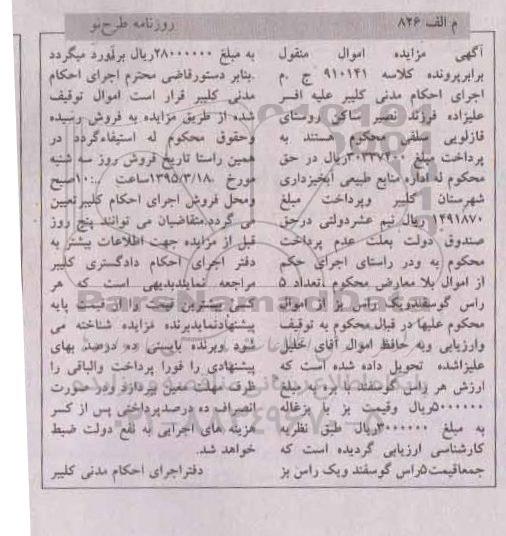 م الف ۸۲۶
روزنامه طرح‌نو
آگهی مزایده اموال منقول
برابرپرونده کلاسه ۹۱۰۱۴۱ ج .م
اجرای احکام مدنی کلیبر علیه افسر
علیزاده فرزند نصیر ساکن روستای
قازلویی سلفی محکوم هستند به
پرداخت مبلغ ۳۰۳۳۷۴۰۰ریال در حق
محکوم له اداره منابع طبیعی آبخیزداری
شهرستان کلیبر وپرداخت مبلغ
۱۴۹۱۸۷۰ ریال نیم عشردولتی درحق
صندوق دولت بعلت عدم پرداخت
محکوم به ودر راستای اجرای حکم
از اموال بلا معارض محکوم ،تعداد ۵
راس گوسفندویک راس بز از اموال
محکوم علیها در قبال محکوم به توقیف
وارزیابی وبه حافظ اموال آقای خلیل
علیزاشده تحویل داده شده است که
ارزش هر راس گوسفند با بره به مبلغ
۵۰۰۰۰۰۰ریال وقیمت بز با بزغاله
به مبلغ ۳۰۰۰۰۰۰ریال طبق نظریه
کارشناسی ارزیابی گردیده است که
جمعاقیمت۵راس گوسفند ویک راس بز
به مبلغ ۲۸۰۰۰۰۰۰ریال برآورد میگردد
.بنابر دستورقاضی محترم اجرای احکام
مدنی کلیبر قرار است اموال توقیف
شده از طریق مزایده به فروش رسیده
وحقوق محکوم له استیفاءگردد در
همین راستا تاریخ فروش روز سه شنبه
مورخ ۱۳۹۵/۳/۱۸ساعت ۱۰:۰۰صبح
ومحل فروش اجرای احکام کلیبرتعیین
می گردد.متقاضیان می توانند پنج روز
قبل از مزایده جهت اطلاعات بیشتر به
دفتر اجرای احکام دادگستری کلیبر
مراجعه نمایندبدیهی است که هر
کسی بیشترین قیمت را از قیمت پایه
پیشنهادنمایدبرنده مزایده شناخته می
شود .وبرنده بایستی ده درصد بهای
پیشنهادی را فورا پرداخت والباقی را
ظرف مهلت معین بپردازد ودر صورت
انصراف ده درصدپرداختی پس از کسر
هزینه های اجرایی به نفع دولت ضبط
خواهد شد.
دفتراجرای احکام مدنی کلیبر
ParsNamadData